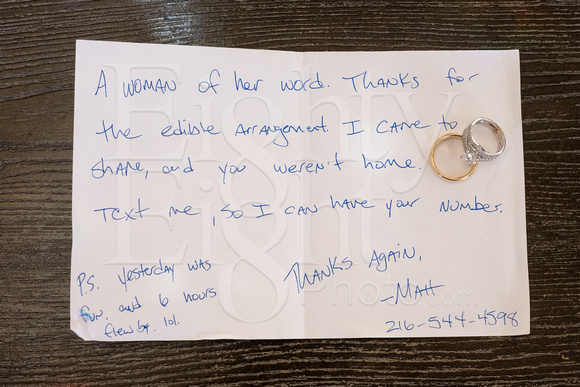 A WOMAN of her word. THANKS for
the edible Arrangement. I CAME to
SHARE, and you weren't home.
Text me, so I CAN have your NUMBER.
THANKS AGAIN,
-MAtt
216-544-4598
P.S. Yesterday was
fun. and 6 hours
flew by. lol.
Eighty
Eight
PHOTO.com